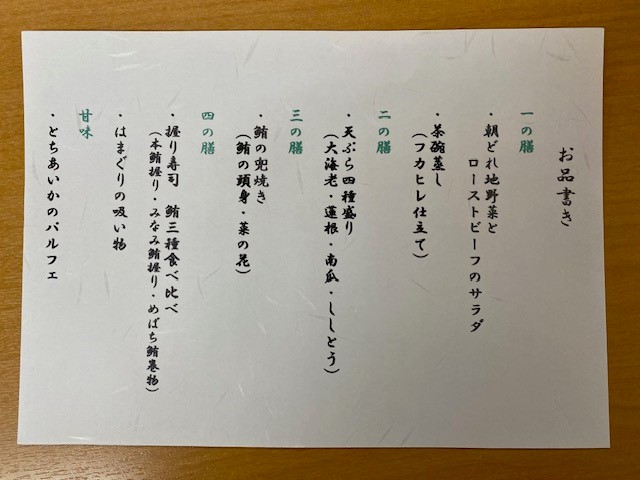 お品書き
一の膳
・朝どれ地野菜と
ローストビーフのサラダ
・茶碗蒸し
(フカヒレ仕立て)
二の膳
・天ぷら四種盛り
(大海老・蓮根・南瓜・ししとう)
三の膳
・鮪の兜焼き
(鮪の頭身・菜の花)
四の膳
・握り寿司 鮪三種食べ比べ
(本鮪握り・みなみ鮪握り・めばち鮪巻物)
・はまぐりの吸い物
甘味
・とちあいかのパルフェ